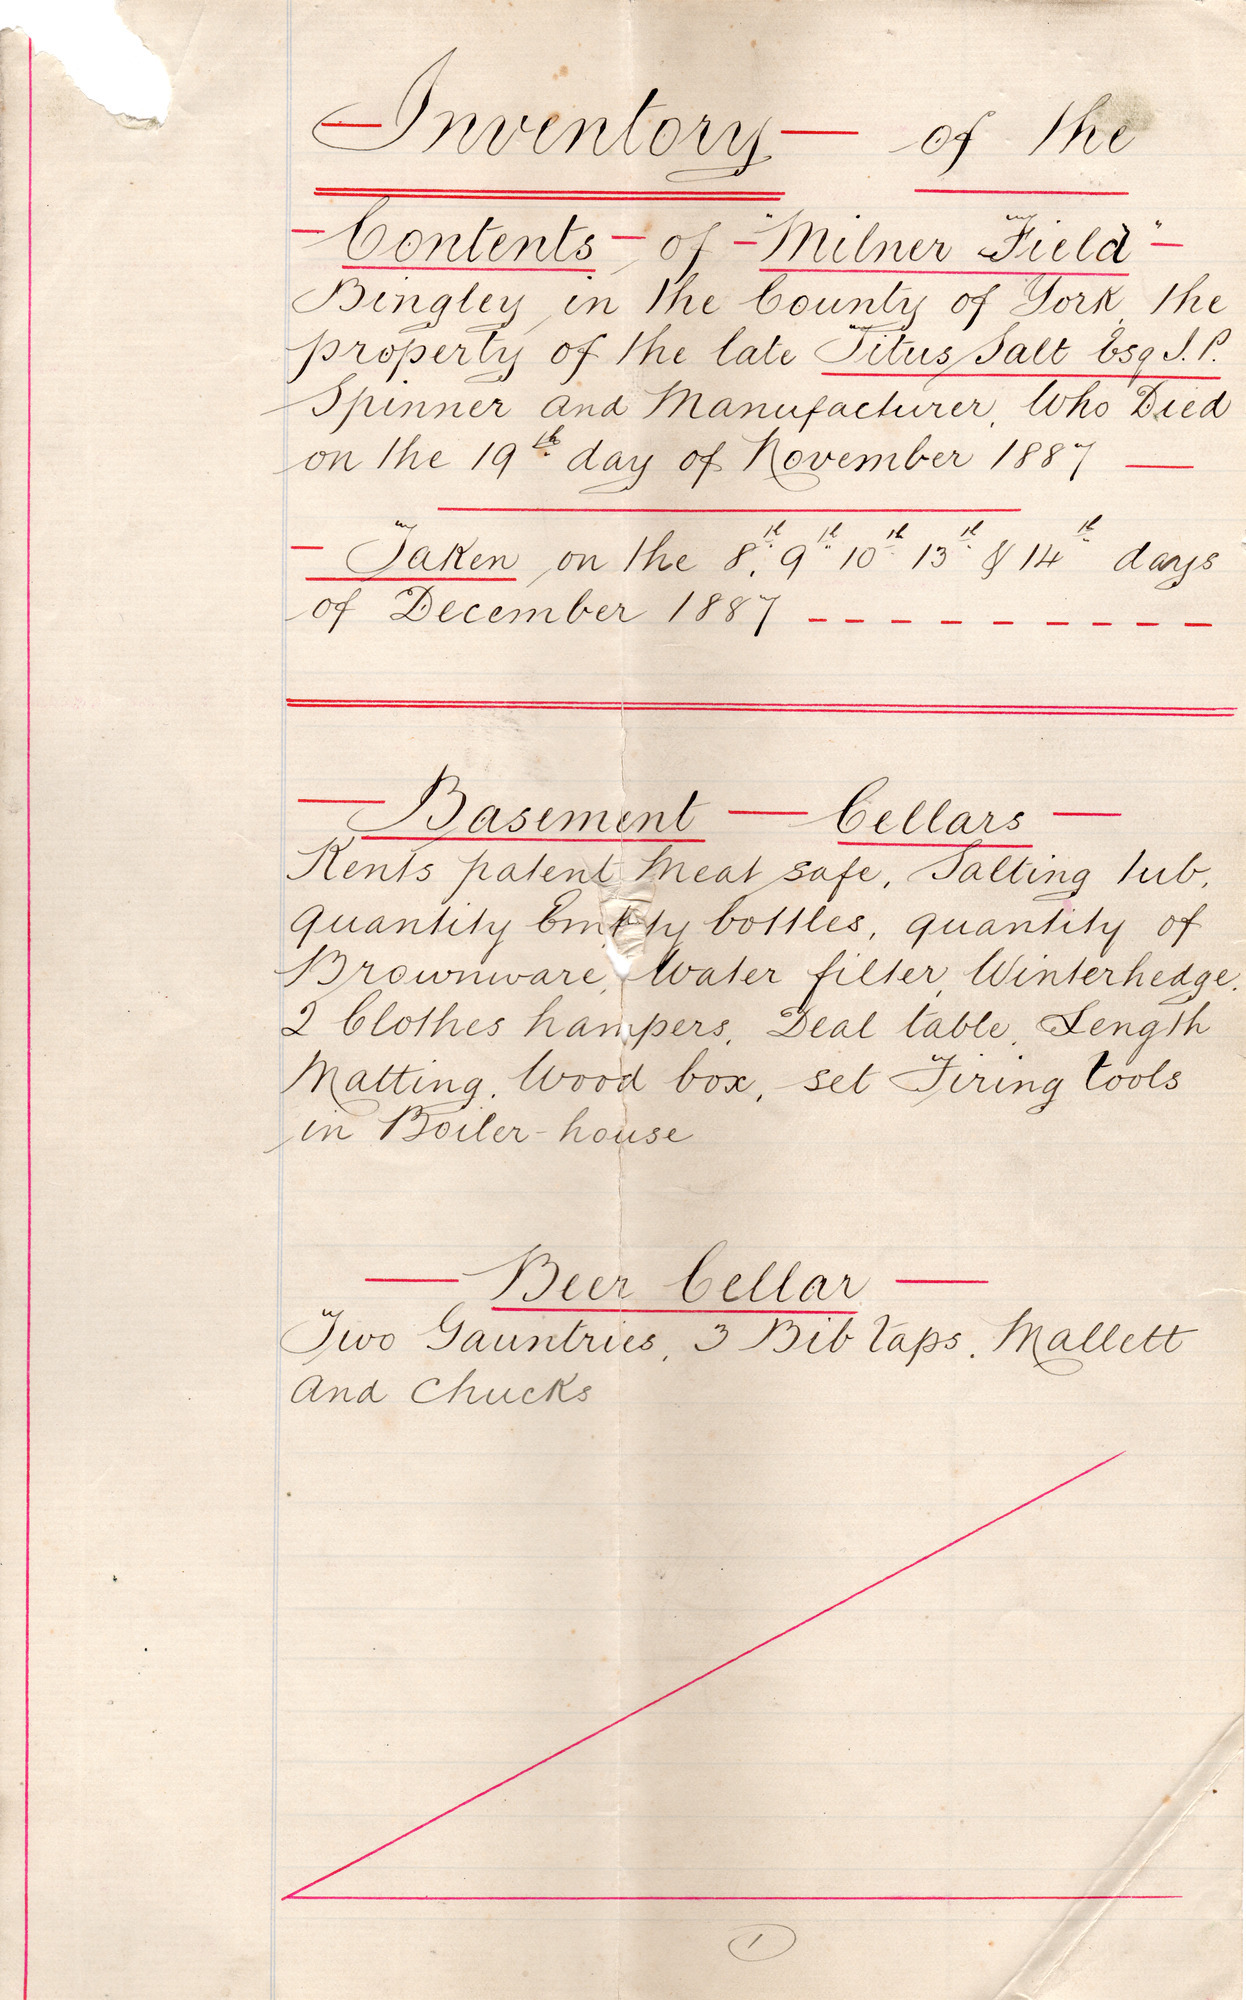 Inventory of the
Contents of "Milner Field"
Bingley in the County of York, the
property of the late Titus Salt Esq J. P.
Spinner and Manufacturer, Who Died
on the 19th day of November 1887
Taken on the 8th, 9th 10th 13th & 14th days
of December 1887
Basement Cellars
Kents patent Meat safe, Salting tub,
quantity Empty bottles, quantity of
Brownware, Water filter, Winterhedge,
2 Clothes hampers, Deal table, Length
Matting, Wood box, set Firing tools
in Boiler-house
Beer Cellar
Two Gauntries, 3 Bib taps, Mallett
and Chucks
1